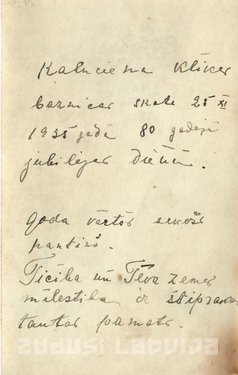 Kalnciema Klīver
baznīcas 25 XI
1935 gada 80 gadeja
jubilejas dienā.
goda vārtos
pantiņš.
Ticība un Tēva zemes
mīlestība ir stiprava
tautas pamats.
ZUDUSI LATVIJA